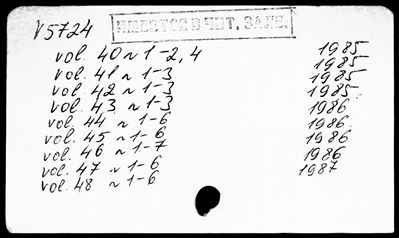 V5724
ИМЕЕТСЯ В ЧИТ. ЗАЛЕ.
vol. 40 n 1-2, 4 1985
vol. 41 n 1-3 1985
vol. 42 n 1-3 1985
vol. 43 n 1-3 1985
vol. 44 n 1-6 1986
vol. 45 n 1-6 1986
vol. 46 n 1-7 1986
vol. 47 n 1-6 1986
vol. 48 n 1-6 1987